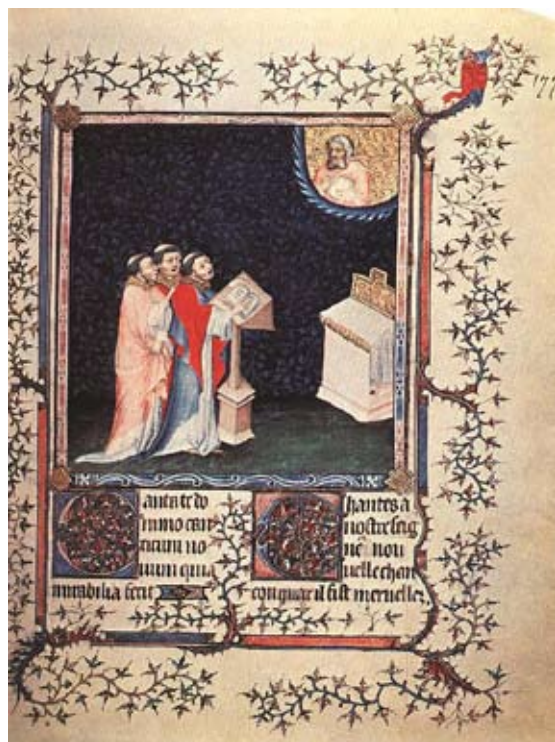 antate do
mino can
ticum no
uum quia
mirabilia fecit
hantes a
nostre seig
nouuelle chan
con quar il fist merueilles.